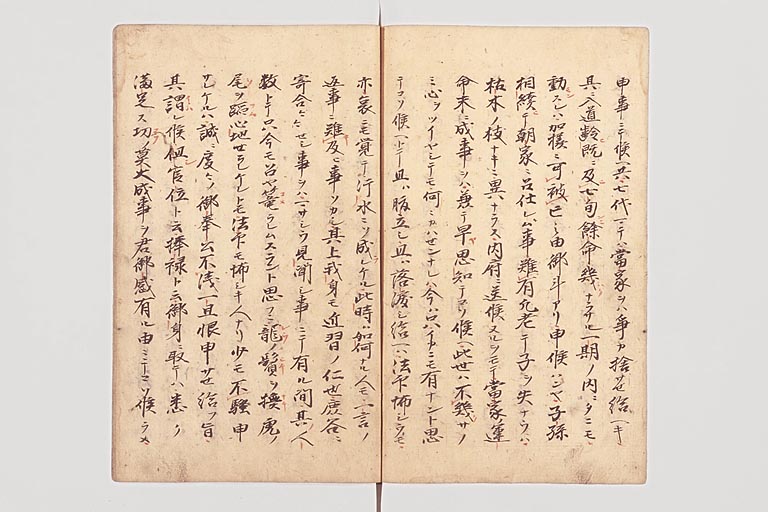 申事ニテ候ヘ共七代マテハ當家ヲハ争カ捨サセ給ヘキ
其ニ入道齢既ニ及七旬餘命幾ナラヌ一期ノ内ニタニモ
動スレハ如様ニ可被亡之由御斗アリ申候ハンヤ子孫
相続テ朝家ニ召仕レン事難有凡老テ子ヲ失ナウハ
枯木ノ枝ナキニ異ナラス内府ニ送候ヌルヲモテ當家運
命末ニ成事ヲハ兼テ早思知テコソ候ヘ此世ハ不幾サノ
ミ心ヲツイヤシテモ何ニカハセンナレハ今ハ只イカニモ有ナント思
テコソ候ヘトテ且ハ腹立シ且ハ落涙シ給ヘハ法印怖シウモ
亦哀ニモ覚テ汗水ニソ成レケル此時ハ如何ナル人モ一言ノ
返事ニ難及コト事ソカシ其上我身モ近習ノ仁也鹿谷ニ
寄合ケンセシ事ヲハマサシウ見聞シ事ニテ有ル間其人
数トテ只今モ召ヤ篭ラレムスラント思フニ龍ノ鬚ヲ撫虎ノ
尾ヲ踏心地セラレケレトモ法印モ怖シキ人ナリ少モ不騒申
サレケルハ誠ニ度々ノ御奉公不浅一旦恨申サセ給フ旨
其謂レ候但官位ト云俸禄ト云御身ニ取テハ悉ク
滿足ス功ノ莫大成事ヲ君御感有ル由ミニテコソ候ラメ